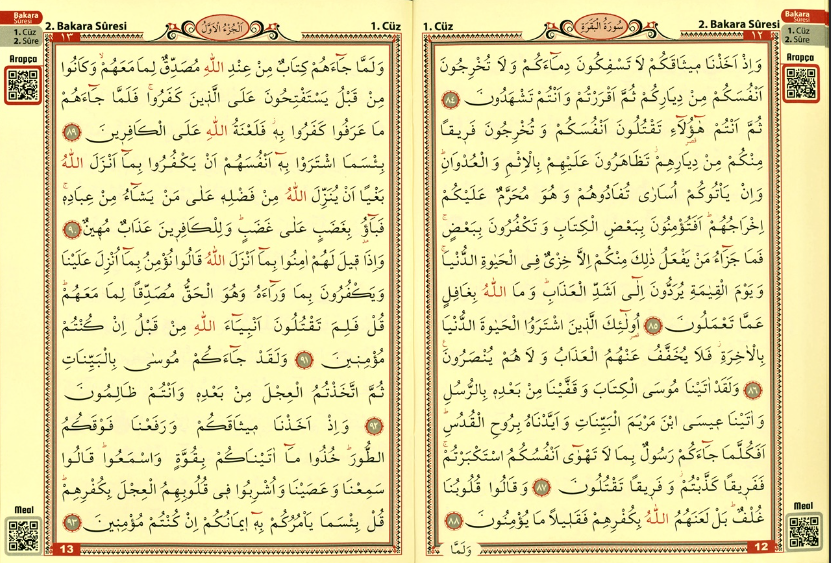 Bakara
Sûresi
1. Cüz
2. Sûre
Arapça
Meal
1. Cüz
سُورَةُ الْبَقَرَةِ
2. Bakara Sûresi
١٢
وَاِذْ اَخَذْنَا م۪يثَاقَكُمْ لَا تَسْفِكُونَ دِمَٓاءَكُمْ وَلَا تُخْرِجُونَ
اَنْفُسَكُمْ مِنْ دِيَارِكُمْ ثُمَّ اَقْرَرْتُمْ وَاَنْتُمْ تَشْهَدُونَ ﴿٨٤﴾
ثُمَّ اَنْتُمْ هٰٓؤُ۬لَٓاءِ تَقْتُلُونَ اَنْفُسَكُمْ وَتُخْرِجُونَ فَر۪يقًا
مِنْكُمْ مِنْ دِيَارِهِمْۘ تَظَاهَرُونَ عَلَيْهِمْ بِالْاِثْمِ وَالْعُدْوَانِۜ
وَاِنْ يَأْتُوكُمْ اُسَارٰى تُفَادُوهُمْ وَهُوَ مُحَرَّمٌ عَلَيْكُمْ
اِخْرَاجُهُمْۜ اَفَتُؤْمِنُونَ بِبَعْضِ الْكِتَابِ وَتَكْفُرُونَ بِبَعْضٍۚ
فَمَا جَزَٓاءُ مَنْ يَفْعَلُ ذٰلِكَ مِنْكُمْ اِلَّا خِزْيٌ فِي الْحَيٰوةِ الدُّنْيَاۚ
وَيَوْمَ الْقِيٰمَةِ يُرَدُّونَ اِلٰٓى اَشَدِّ الْعَذَابِۜ وَمَا اللّٰهُ بِغَافِلٍ
عَمَّا تَعْمَلُونَ ﴿٨٥﴾ اُو۬لٰٓئِكَ الَّذ۪ينَ اشْتَرَوُا الْحَيٰوةَ الدُّنْيَا
بِالْاٰخِرَةِۘ فَلَا يُخَفَّفُ عَنْهُمُ الْعَذَابُ وَلَا هُمْ يُنْصَرُونَ۟
﴿٨٦﴾ وَلَقَدْ اٰتَيْنَا مُوسَى الْكِتَابَ وَقَفَّيْنَا مِنْ بَعْدِه۪ بِالرُّسُلِ
وَاٰتَيْنَا ع۪يسَى ابْنَ مَرْيَمَ الْبَيِّنَاتِ وَاَيَّدْنَاهُ بِرُوحِ الْقُدُسِۜ
اَفَكُلَّمَا جَٓاءَكُمْ رَسُولٌ بِمَا لَا تَهْوٰٓى اَنْفُسُكُمُ اسْتَكْبَرْتُمْۚ
فَفَر۪يقًا كَذَّبْتُمْۘ وَفَر۪يقًا تَقْتُلُونَ ﴿٨٧﴾ وَقَالُوا قُلُوبُنَا
غُلْفٌۜ بَلْ لَعَنَهُمُ اللّٰهُ بِكُفْرِهِمْ فَقَل۪يلًا مَا يُؤْمِنُونَ ﴿٨٨﴾
وَلَمَّا
12
2. Bakara Sûresi
اَلْجُزْءُ الْاَوَّلُ
1. Cüz
١٣
وَلَمَّا جَٓاءَهُمْ كِتَابٌ مِنْ عِنْدِ اللّٰهِ مُصَدِّقٌ لِمَا مَعَهُمْۙ وَكَانُوا
مِنْ قَبْلُ يَسْتَفْتِحُونَ عَلَى الَّذ۪ينَ كَفَرُواۚ فَلَمَّا جَٓاءَهُمْ
مَا عَرَفُوا كَفَرُوا بِه۪ۘ فَلَعْنَةُ اللّٰهِ عَلَى الْكَافِر۪ينَ ﴿٨٩﴾
بِئْسَمَا اشْتَرَوْا بِه۪ٓ اَنْفُسَهُمْ اَنْ يَكْفُرُوا بِمَٓا اَنْزَلَ اللّٰهُ
بَغْيًا اَنْ يُنَزِّلَ اللّٰهُ مِنْ فَضْلِه۪ عَلٰى مَنْ يَشَٓاءُ مِنْ عِبَادِه۪ۚ
فَبَٓاؤُ۫ بِغَضَبٍ عَلٰى غَضَبٍۜ وَلِلْكَافِر۪ينَ عَذَابٌ مُه۪ينٌ ﴿٩٠﴾
وَاِذَا ق۪يلَ لَهُمْ اٰمِنُوا بِمَٓا اَنْزَلَ اللّٰهُ قَالُوا نُؤْمِنُ بِمَٓا اُنْزِلَ عَلَيْنَا
وَيَكْفُرُونَ بِمَا وَرَٓاءَهُ وَهُوَ الْحَقُّ مُصَدِّقًا لِمَا مَعَهُمْۜ
قُلْ فَلِمَ تَقْتُلُونَ اَنْبِيَٓاءَ اللّٰهِ مِنْ قَبْلُ اِنْ كُنْتُمْ
مُؤْمِن۪ينَ ﴿٩١﴾ وَلَقَدْ جَٓاءَكُمْ مُوسٰى بِالْبَيِّنَاتِ
ثُمَّ اتَّخَذْتُمُ الْعِجْلَ مِنْ بَعْدِه۪ وَاَنْتُمْ ظَالِمُونَ
﴿٩٢﴾ وَاِذْ اَخَذْنَا م۪يثَاقَكُمْ وَرَفَعْنَا فَوْقَكُمُ
الطُّورَۜ خُذُوا مَٓا اٰتَيْنَاكُمْ بِقُوَّةٍ وَاسْمَعُواۜ قَالُوا
سَمِعْنَا وَعَصَيْنَا وَاُشْرِبُوا ف۪ي قُلُوبِهِمُ الْعِجْلَ بِكُفْرِهِمْۜ
قُلْ بِئْسَمَا يَأْمُرُكُمْ بِه۪ٓ ا۪يمَانُكُمْ اِنْ كُنْتُمْ مُؤْمِن۪ينَ ﴿٩٣﴾
13
Bakara
Sûresi
1. Cüz
2. Sûre
Arapça
Meal